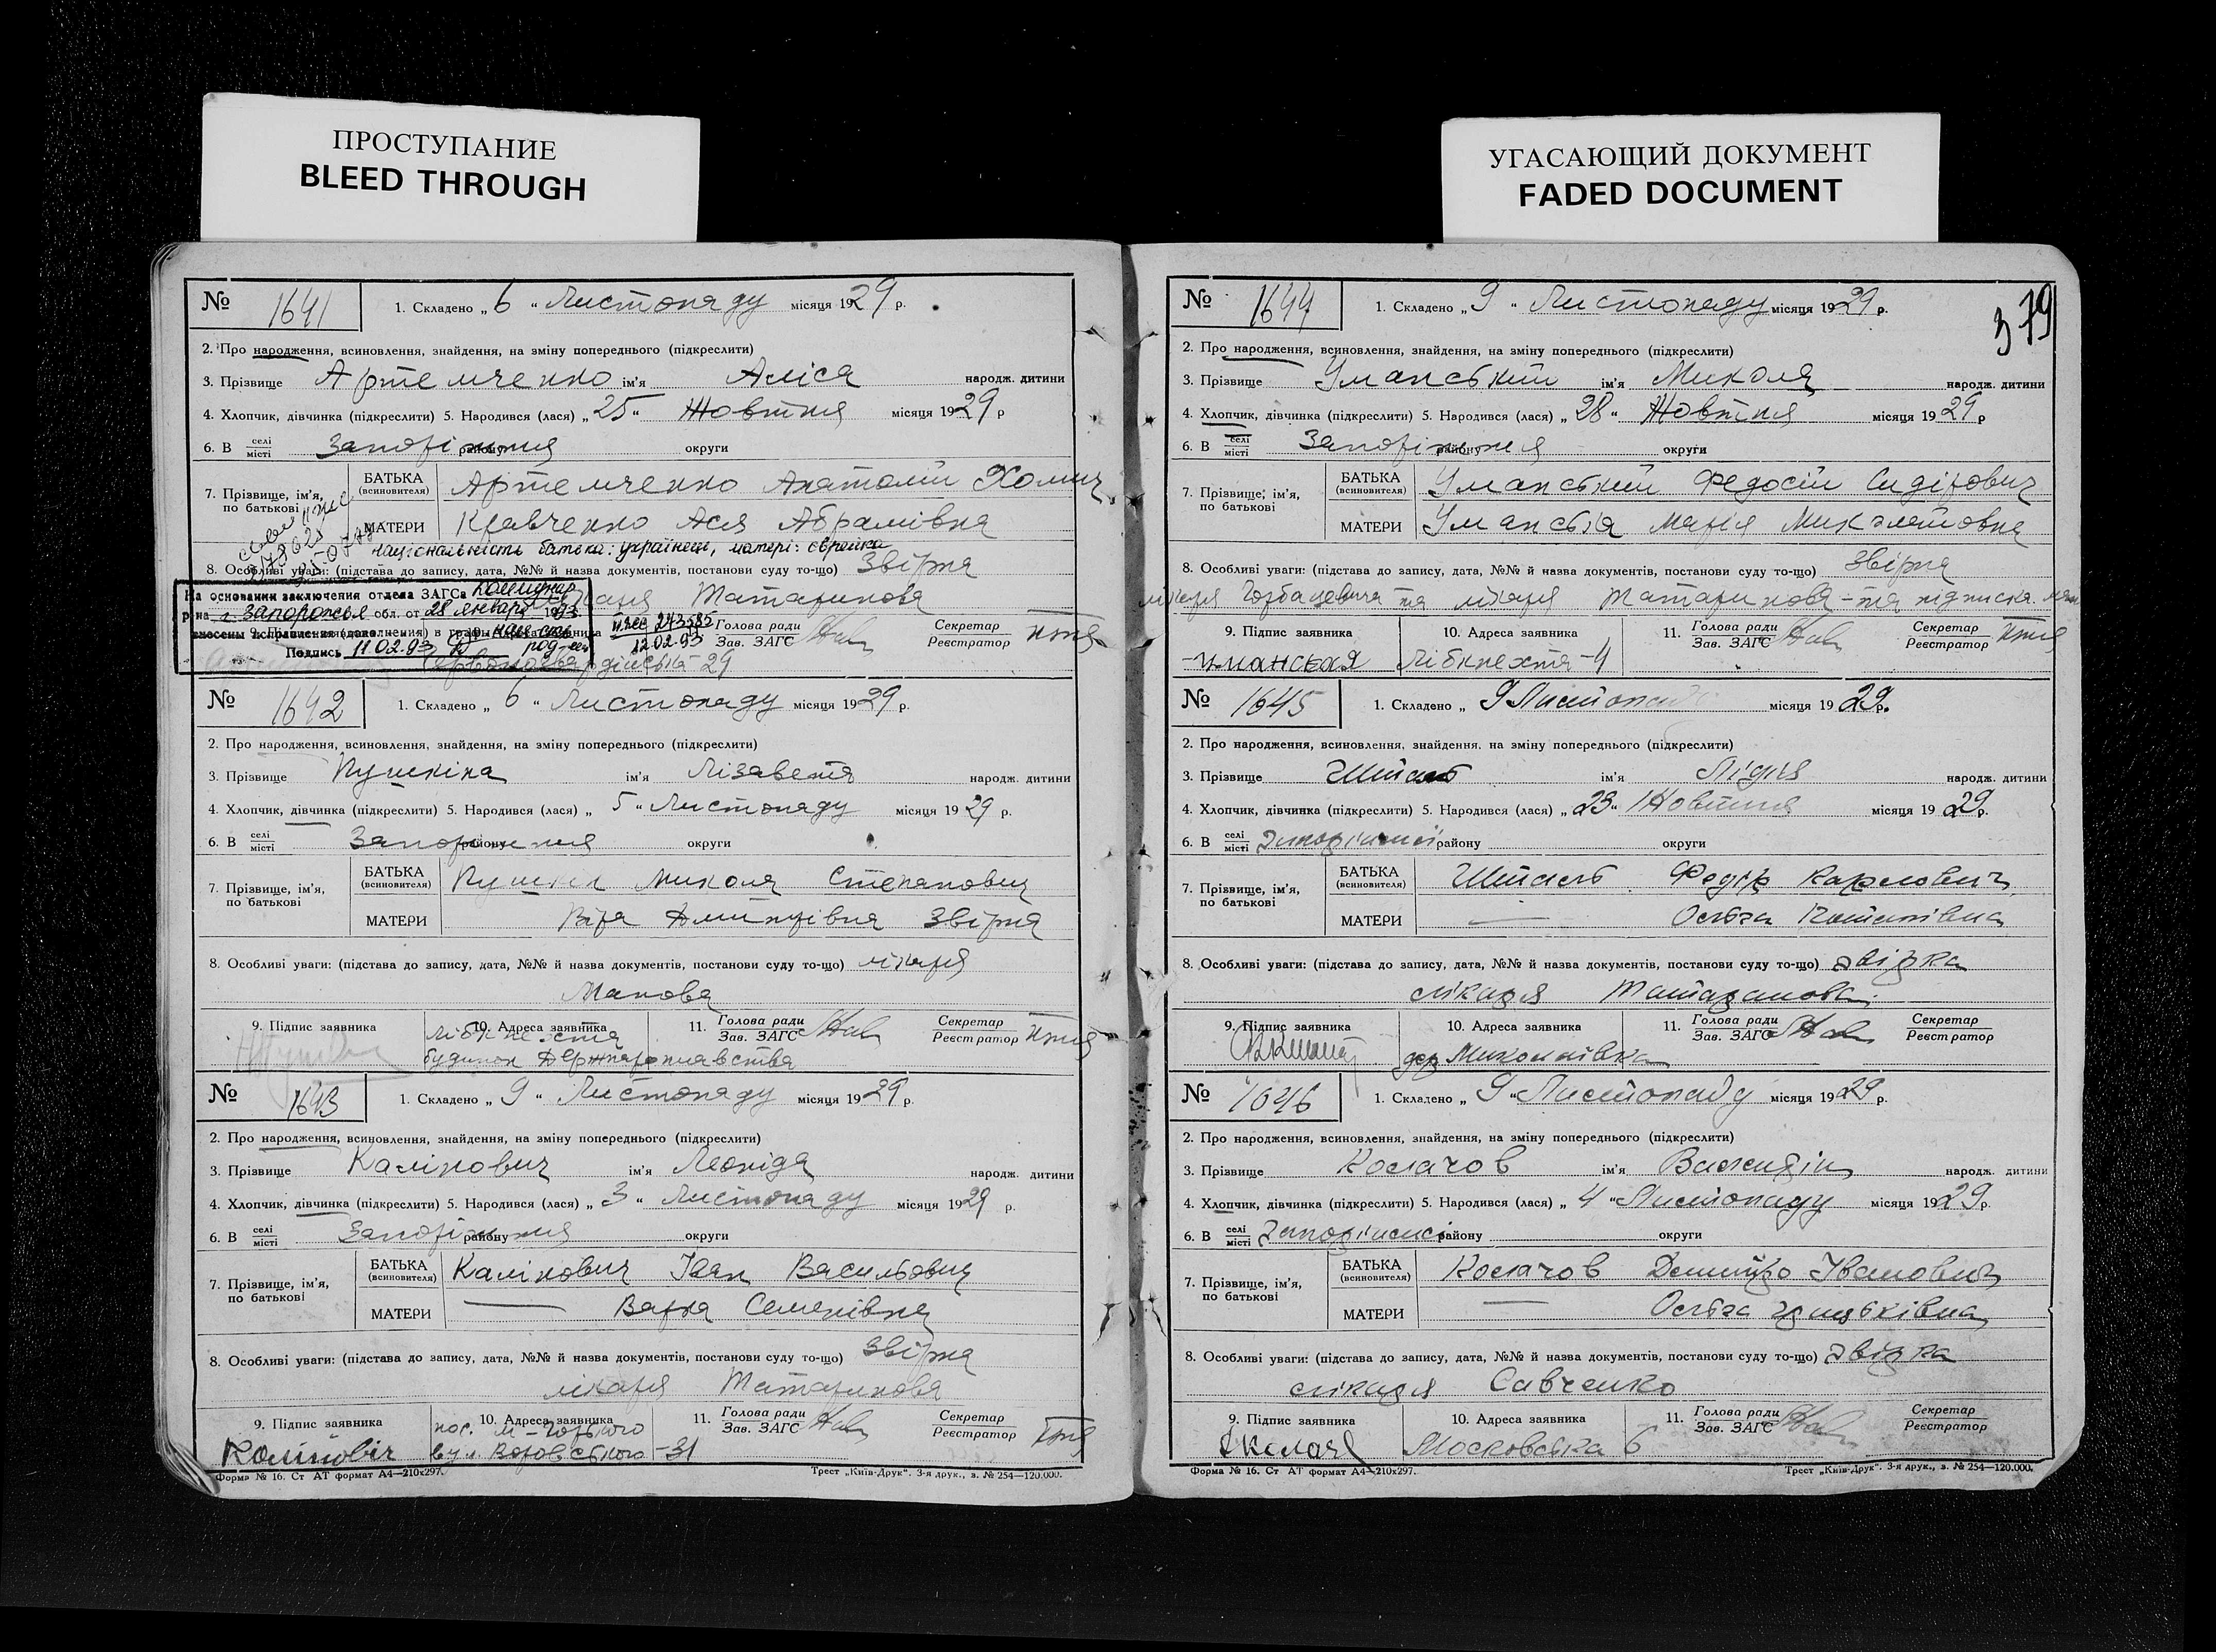 ПРОСТУПАНИЕ
BLEED THROUGH
№ 1641 1. Складено „ 6 “ Листопаду місяця 1929 р.
2. Про народження, всиновлення, знайдення, на зміну попереднього (підкреслити)
3. Прізвище Артемченко ім'я Аліса народж. дитини
4. Хлопчик, дівчинка (підкреслити) 5. Народився (лася) „ 25 “ Жовтня місяця 1929 р
6. В селі місті Запоріжжя району округи
7. Прізвище, ім'я, по батькові
БАТЬКА (всиновителя) Артемченко Анатолій Хомич
МАТЕРИ Кравченко Ася Абрамівна
національність батька: українець, матері: єврейка
8. Особливі уваги: (підстава до запису, дата, №№ й назва документів, постанови суду то-що) Звірка
лікаря Татаринова
На основании заключения отдела ЗАГСа
р-на г. Запорожья обл. от 28 января 1993
внесены исправления (дополнения) в графы
Подпись 11.02.93
12.02.93
11. Голова ради Зав. ЗАГС Секретар Реєстратор
Червоногвардійська 29
№ 1642 1. Складено „ 6 “ Листопаду місяця 1929 р.
2. Про народження, всиновлення, знайдення, на зміну попереднього (підкреслити)
3. Прізвище Пушкіна ім'я Лізавета народж. дитини
4. Хлопчик, дівчинка (підкреслити) 5. Народився (лася) „ 5 “ Листопаду місяця 1929 р.
6. В селі місті Запоріжжя району округи
7. Прізвище, ім'я, по батькові
БАТЬКА (всиновителя) Пушкін Микола Степанович
МАТЕРИ Віра Дмитрівна Звірка
8. Особливі уваги: (підстава до запису, дата, №№ й назва документів, постанови суду то-що) лікаря
Манова
9. Підпис заявника 10. Адреса заявника 11. Голова ради Зав. ЗАГС Секретар Реєстратор
Лібкнехта
будинок
№ 1643 1. Складено „ 9 “ Листопаду місяця 1929 р.
2. Про народження, всиновлення, знайдення, на зміну попереднього (підкреслити)
3. Прізвище Калінович ім'я Леоніда народж. дитини
4. Хлопчик, дівчинка (підкреслити) 5. Народився (лася) „ 3 “ Листопаду місяця 1929 р.
6. В селі місті Запоріжжя району округи
7. Прізвище, ім'я, по батькові
БАТЬКА (всиновителя) Калінович Іван Васильович
МАТЕРИ — Варка Семенівна
8. Особливі уваги: (підстава до запису, дата, №№ й назва документів, постанови суду то-що) Звірка
лікаря Татаринова
9. Підпис заявника 10. Адреса заявника 11. Голова ради Зав. ЗАГС Секретар Реєстратор
пос. М-Горького
вул. Воровського -31
Форма № 16. Ст АТ формат А4—210х297. Трест „Київ-Друк“. 3-я друк., з. № 254—120.000.
УГАСАЮЩИЙ ДОКУМЕНТ
FADED DOCUMENT
379
№ 1644 1. Складено „ 9 “ Листопаду місяця 1929 р.
2. Про народження, всиновлення, знайдення, на зміну попереднього (підкреслити)
3. Прізвище Уманський ім'я Микола народж. дитини
4. Хлопчик, дівчинка (підкреслити) 5. Народився (лася) „ 28 “ Жовтня місяця 1929 р
6. В селі місті Запоріжжя району округи
7. Прізвище, ім'я, по батькові
БАТЬКА (всиновителя) Уманський Федосій Сидірович
МАТЕРИ Уманська Марія Михайловна
8. Особливі уваги: (підстава до запису, дата, №№ й назва документів, постанови суду то-що) Звірка
лікаря Горбацевича та лікаря Татаринова - та підписка
9. Підпис заявника 10. Адреса заявника 11. Голова ради Зав. ЗАГС Секретар Реєстратор
Уманская Лібкнехта-4
№ 1645 1. Складено „ 9 Листопаду місяця 1929 р.
2. Про народження, всиновлення, знайдення, на зміну попереднього (підкреслити)
3. Прізвище ім'я Лідія народж. дитини
4. Хлопчик, дівчинка (підкреслити) 5. Народився (лася) „ 23 “ Жовтня місяця 1929 р.
6. В селі місті Запоріжжі району округи
7. Прізвище, ім'я, по батькові
БАТЬКА (всиновителя) Федір Карлович
МАТЕРИ — Ольга
8. Особливі уваги: (підстава до запису, дата, №№ й назва документів, постанови суду то-що) звірка
лікаря Татаранова
9. Підпис заявника 10. Адреса заявника 11. Голова ради Зав. ЗАГС Секретар Реєстратор
дер Миколаївка
№ 1646 1. Складено „ 9 “ Листопаду місяця 1929 р.
2. Про народження, всиновлення, знайдення, на зміну попереднього (підкреслити)
3. Прізвище Колачов ім'я Валентін народж. дитини
4. Хлопчик, дівчинка (підкреслити) 5. Народився (лася) „ 4 “ Листопаду місяця 1929 р.
6. В селі місті Запоріжжі району округи
7. Прізвище, ім'я, по батькові
БАТЬКА (всиновителя) Колачов Дмитро Іванович
МАТЕРИ — Ольга
8. Особливі уваги: (підстава до запису, дата, №№ й назва документів, постанови суду то-що) звірка
лікаря Савченко
9. Підпис заявника 10. Адреса заявника 11. Голова ради Зав. ЗАГС Секретар Реєстратор
Московська 6
Форма № 16. Ст АТ формат А4—210х297. Трест „Київ-Друк“. 3-я друк., з. № 254—120.000.